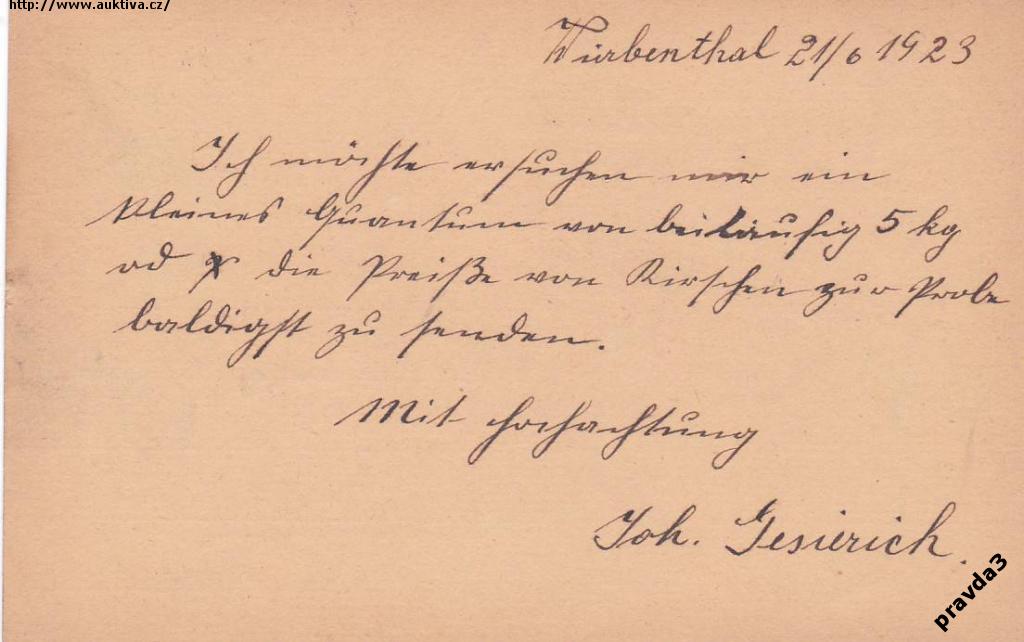 http://www.auktiva.cz/
Würbenthal 21/6 1923
Ich möchte ersuchen mir ein
kleines Quantum von beiläufig 5 kg
od die Preiße von Kirschen zur Probe
baldigst zu senden.
Mit Hochachtung
Joh. Gesierich.
pravda3